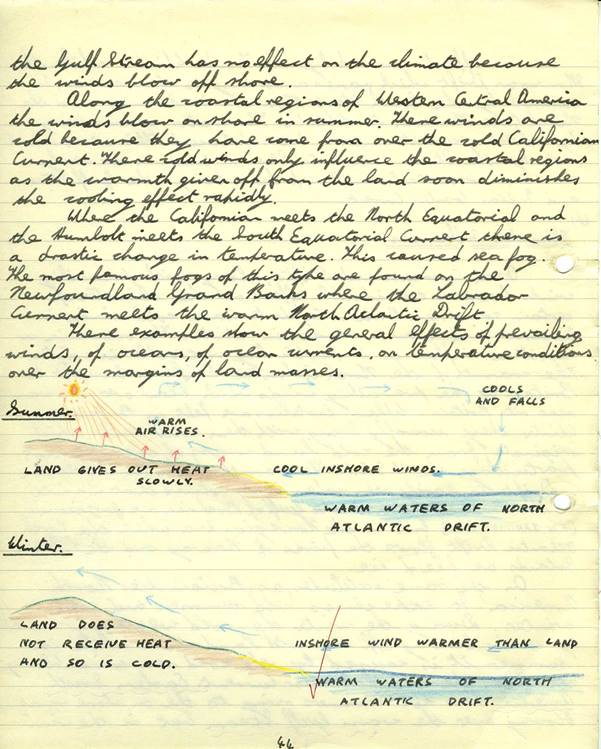 the Gulf Stream has no effect on the climate because
the winds blow off shore.
Along the coastal regions of Western Central America
the winds blow on shore in summer. These winds are
cold because they have come from over the cold Californian
Current. These cold winds only influence the coastal regions
as the warmth given off from the land soon diminishes
the cooling effect rapidly.
Where the Californian meets the North Equatorial and
the Humbolt meets the South Equatorial Current there is
a drastic change in temperature. This caused sea fog.
The most famous fogs of this type are found on the
Newfoundland Grand Banks where the Labrador
Current meets the warm North Atlantic Drift
These examples show the general effects of prevailing
winds, of oceans, of ocean currents, on temperature conditions
over the margins of land masses.
COOLS
AND FALLS
Summer.
WARM
AIR RISES.
LAND GIVES OUT HEAT
SLOWLY.
COOL INSHORE WINDS.
WARM WATERS OF NORTH
ATLANTIC DRIFT.
Winter.
LAND DOES
NOT RECEIVE HEAT
AND SO IS COLD.
INSHORE WIND WARMER THAN LAND
WARM WATERS OF NORTH
ATLANTIC DRIFT.
44